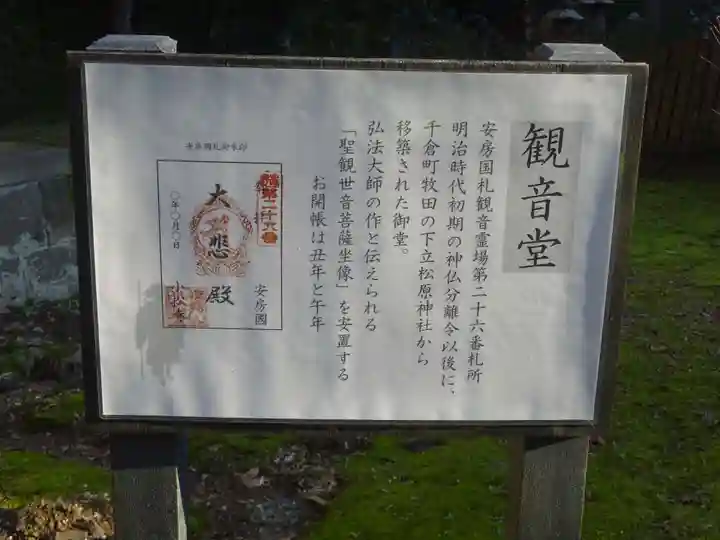 観音堂
安房国札観音霊場第二十六番札所
明治時代初期の神仏分離令以後に、
千倉町牧田の下立松原神社から
移築された御堂。
弘法大師の作と伝えられる
「聖観世音菩薩坐像」を安置する
お開帳は丑年と午年
安房国札御朱印
第二十六番
大悲殿
安房国
〇年〇月〇日